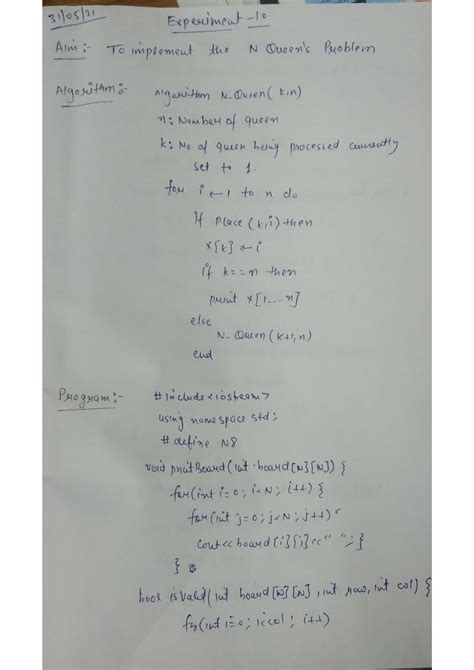 31/05/21
Experiment -10
Aim :- To implement the N Queen's Problem
Algorithm :- Algorithm N-Queen( k,n)
n: Number of queen
k: No of queen being processed currently
set to 1.
for i ← 1 to n do
If Place (k,i) then
x[k] ← i
if k == n then
print x[1---n]
else
N-Queen (k+1, n)
end
Program :- # include <iostream>
using namespace std;
# define N 8
void printBoard (int board[N][N]) {
for (int i=0; i<N; i++) {
for (int j=0; j<N; j++)
cout<<board[i][j]<<" ";}
}
bool isValid (int board[N][N], int row, int col) {
for (int i=0; i<col; i++)